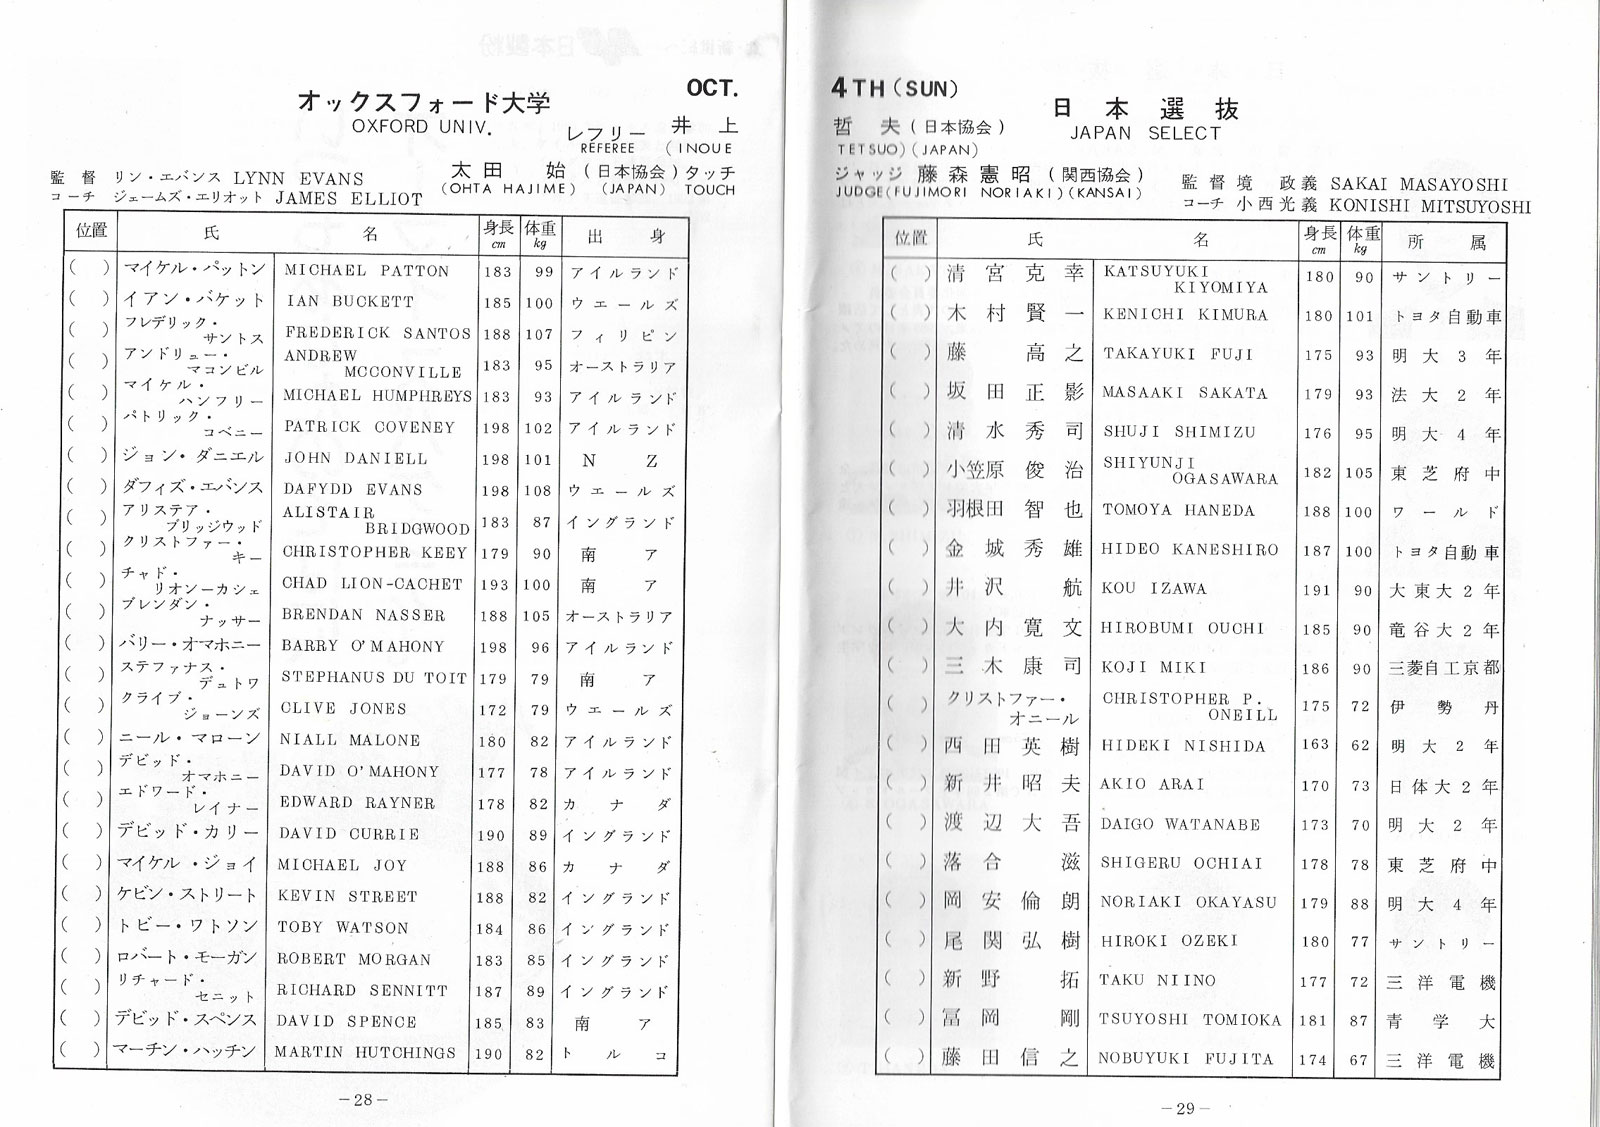 オックスフォード大学
OCT.
OXFORD UNIV.
レフリー 井上
REFEREE (INOUE
太田 始 (日本協会) タッチ
(OHTA HAJIME) (JAPAN) TOUCH
監督 リン・エバンス LYNN EVANS
コーチ ジェームズ・エリオット JAMES ELLIOT
位置 氏 名 身長cm 体重kg 出身
( ) マイケル・パットン MICHAEL PATTON 183 99 アイルランド
( ) イアン・バケット IAN BUCKETT 185 100 ウエールズ
( ) フレデリック・サントス FREDERICK SANTOS 188 107 フィリピン
( ) アンドリュー・マコンビル ANDREW MCCONVILLE 183 95 オーストラリア
( ) マイケル・ハンフリー MICHAEL HUMPHREYS 183 93 アイルランド
( ) パトリック・コベニー PATRICK COVENEY 198 102 アイルランド
( ) ジョン・ダニエル JOHN DANIELL 198 101 NZ
( ) ダフィズ・エバンス DAFYDD EVANS 198 108 ウエールズ
( ) アリステア・ブリッジウッド ALISTAIR BRIDGWOOD 183 87 イングランド
( ) クリストファー・キー CHRISTOPHER KEEY 179 90 南ア
( ) チャド・リオンーカシェ CHAD LION-CACHET 193 100 南ア
( ) ブレンダン・ナッサー BRENDAN NASSER 188 105 オーストラリア
( ) バリー・オマホニー BARRY O'MAHONY 198 96 アイルランド
( ) ステファナス・デュトワ STEPHANUS DU TOIT 179 79 南ア
( ) クライブ・ジョーンズ CLIVE JONES 172 79 ウエールズ
( ) ニール・マローン NIALL MALONE 180 82 アイルランド
( ) デビッド・オマホニー DAVID O'MAHONY 177 78 アイルランド
( ) エドワード・レイナー EDWARD RAYNER 178 82 カナダ
( ) デビッド・カリー DAVID CURRIE 190 89 イングランド
( ) マイケル・ジョイ MICHAEL JOY 188 86 カナダ
( ) ケビン・ストリート KEVIN STREET 188 82 イングランド
( ) トビー・ワトソン TOBY WATSON 184 86 イングランド
( ) ロバート・モーガン ROBERT MORGAN 183 85 イングランド
( ) リチャード・セニット RICHARD SENNITT 187 89 イングランド
( ) デビッド・スペンス DAVID SPENCE 185 83 南ア
( ) マーチン・ハッチン MARTIN HUTCHINGS 190 82 トルコ
－28－
4TH (SUN)
日本選抜
哲夫 (日本協会)
JAPAN SELECT
TETSUO) (JAPAN)
ジャッジ 藤森憲昭 (関西協会)
JUDGE (FUJIMORI NORIAKI) (KANSAI)
監督 境 政義 SAKAI MASAYOSHI
コーチ 小西光義 KONISHI MITSUYOSHI
位置 氏 名 身長cm 体重kg 所属
( ) 清宮克幸 KATSUYUKI KIYOMIYA 180 90 サントリー
( ) 木村賢一 KENICHI KIMURA 180 101 トヨタ自動車
( ) 藤 高之 TAKAYUKI FUJI 175 93 明大3年
( ) 坂田正影 MASAAKI SAKATA 179 93 法大2年
( ) 清水秀司 SHUJI SHIMIZU 176 95 明大4年
( ) 小笠原俊治 SHIYUNJI OGASAWARA 182 105 東芝府中
( ) 羽根田智也 TOMOYA HANEDA 188 100 ワールド
( ) 金城秀雄 HIDEO KANESHIRO 187 100 トヨタ自動車
( ) 井沢 航 KOU IZAWA 191 90 大東大2年
( ) 大内寛文 HIROBUMI OUCHI 185 90 竜谷大2年
( ) 三木康司 KOJI MIKI 186 90 三菱自工京都
( ) クリストファー・オニール CHRISTOPHER P. ONEILL 175 72 伊勢丹
( ) 西田英樹 HIDEKI NISHIDA 163 62 明大2年
( ) 新井昭夫 AKIO ARAI 170 73 日体大2年
( ) 渡辺大吾 DAIGO WATANABE 173 70 明大2年
( ) 落合 滋 SHIGERU OCHIAI 178 78 東芝府中
( ) 岡安倫朗 NORIAKI OKAYASU 179 88 明大4年
( ) 尾関弘樹 HIROKI OZEKI 180 77 サントリー
( ) 新野 拓 TAKU NIINO 177 72 三洋電機
( ) 冨岡 剛 TSUYOSHI TOMIOKA 181 87 青学大
( ) 藤田信之 NOBUYUKI FUJITA 174 67 三洋電機
－29－